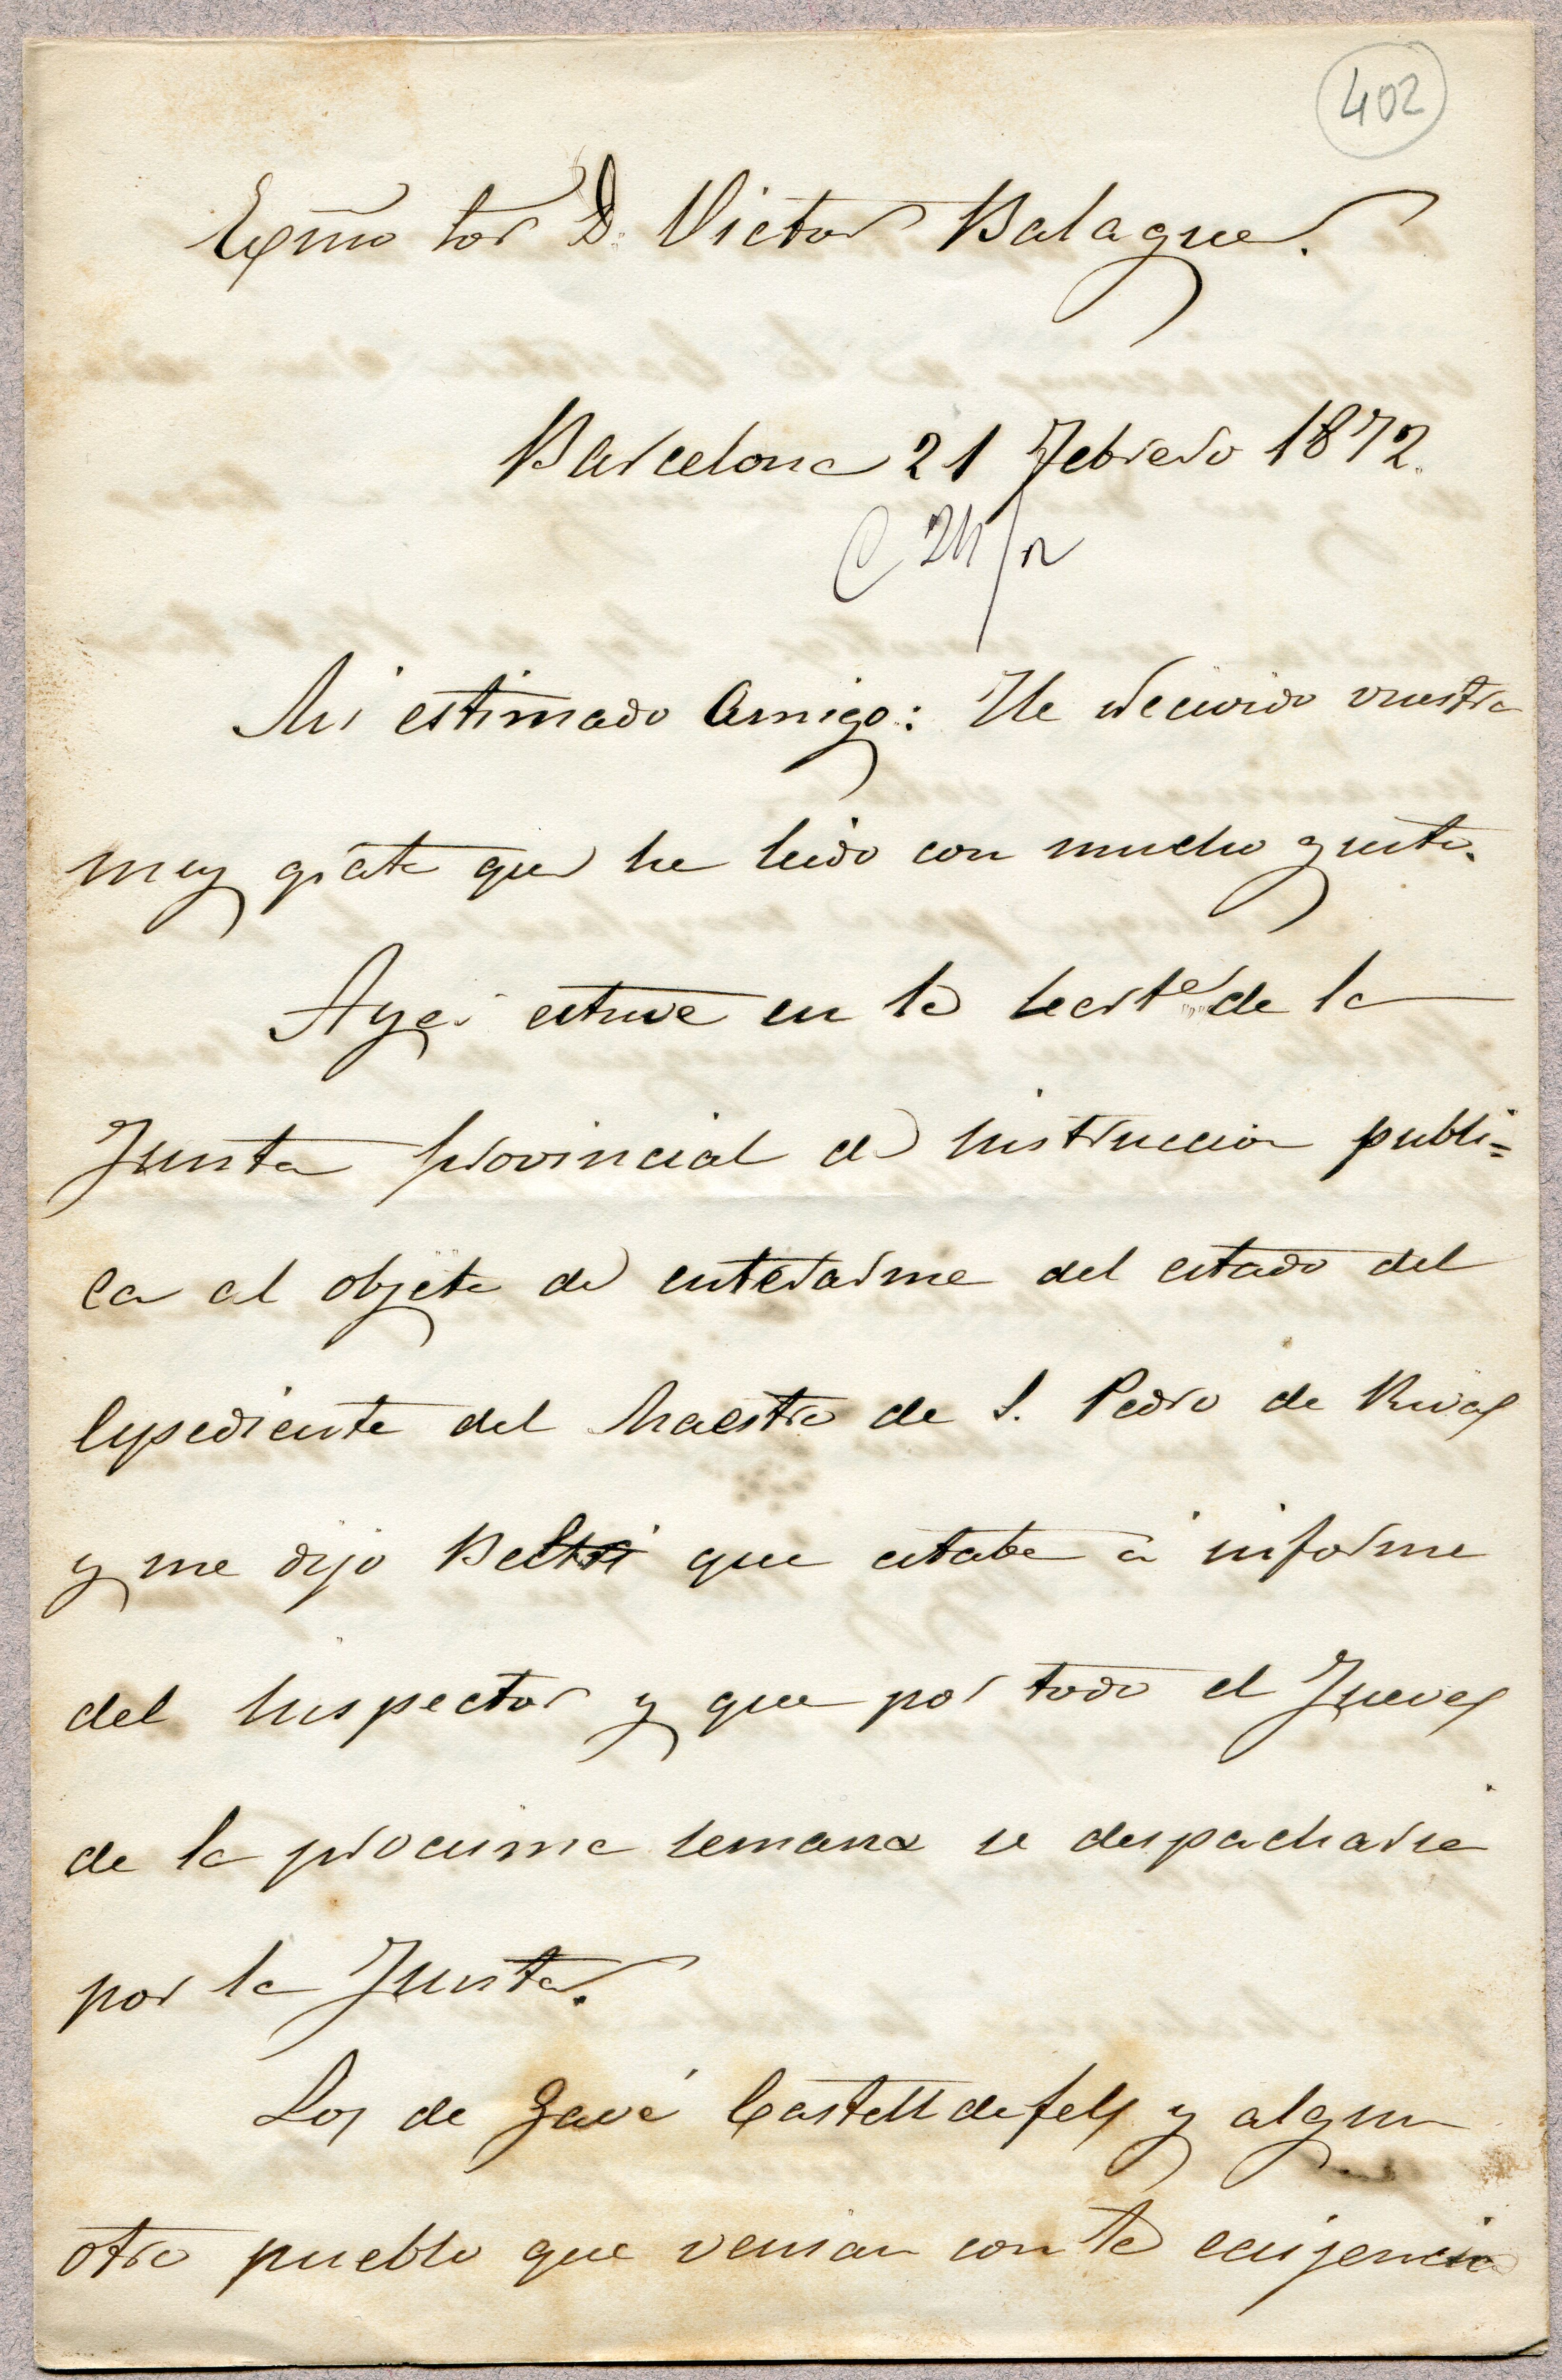 402
Exmo Sor D. Victor Balaguer.
Barcelona 21 Febrero 1872.
C 24/2
Mi estimado amigo: He recivido vuestra
muy grata que he leido con mucho gusto.
Ayer estuve en la Secrta de la
Junta provincial de instruccion publi=
ca al objeto de enterarme del estado del
espediente del Maestro de S. Pedro de Rivas
y me dijo que estaba á informe
del inspector y que por todo el Jueves
de la procsima semana se despacharia
por la Junta.
Los de Gavá Castelldefels y algun
otro pueblo que venian con la ecsijencia